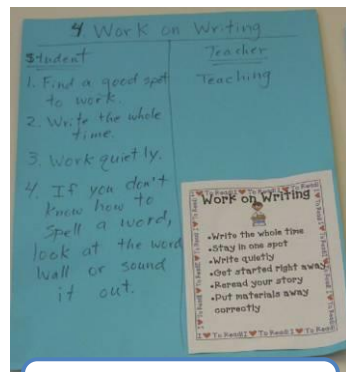 4. Work on Writing
Student
1. Find a good spot
to work.
2. Write the whole
time.
3. Work quietly.
4. If you don't
know how to
spell a word,
look at the word
wall or sound
it out.
Teacher
Teaching
Work on Writing
•Write the whole time
•Stay in one spot
•Write quietly
•Get started right away
•Reread your story
•Put materials away
correctly
I ♥ To Read! I ♥ To Read! I ♥ To Read!